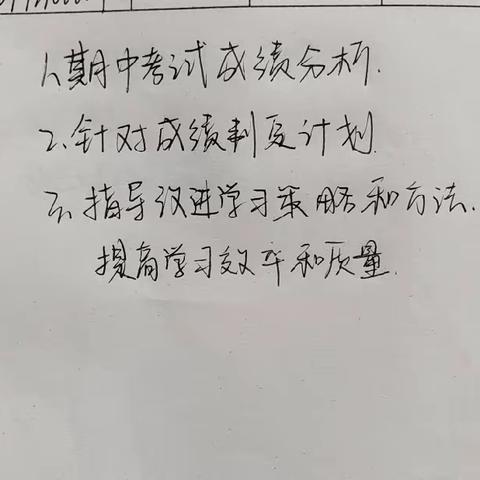 1、期中考试成绩分析.
2、针对成绩制定计划
3、指导改进学习策略和方法.
提高学习效率和质量.